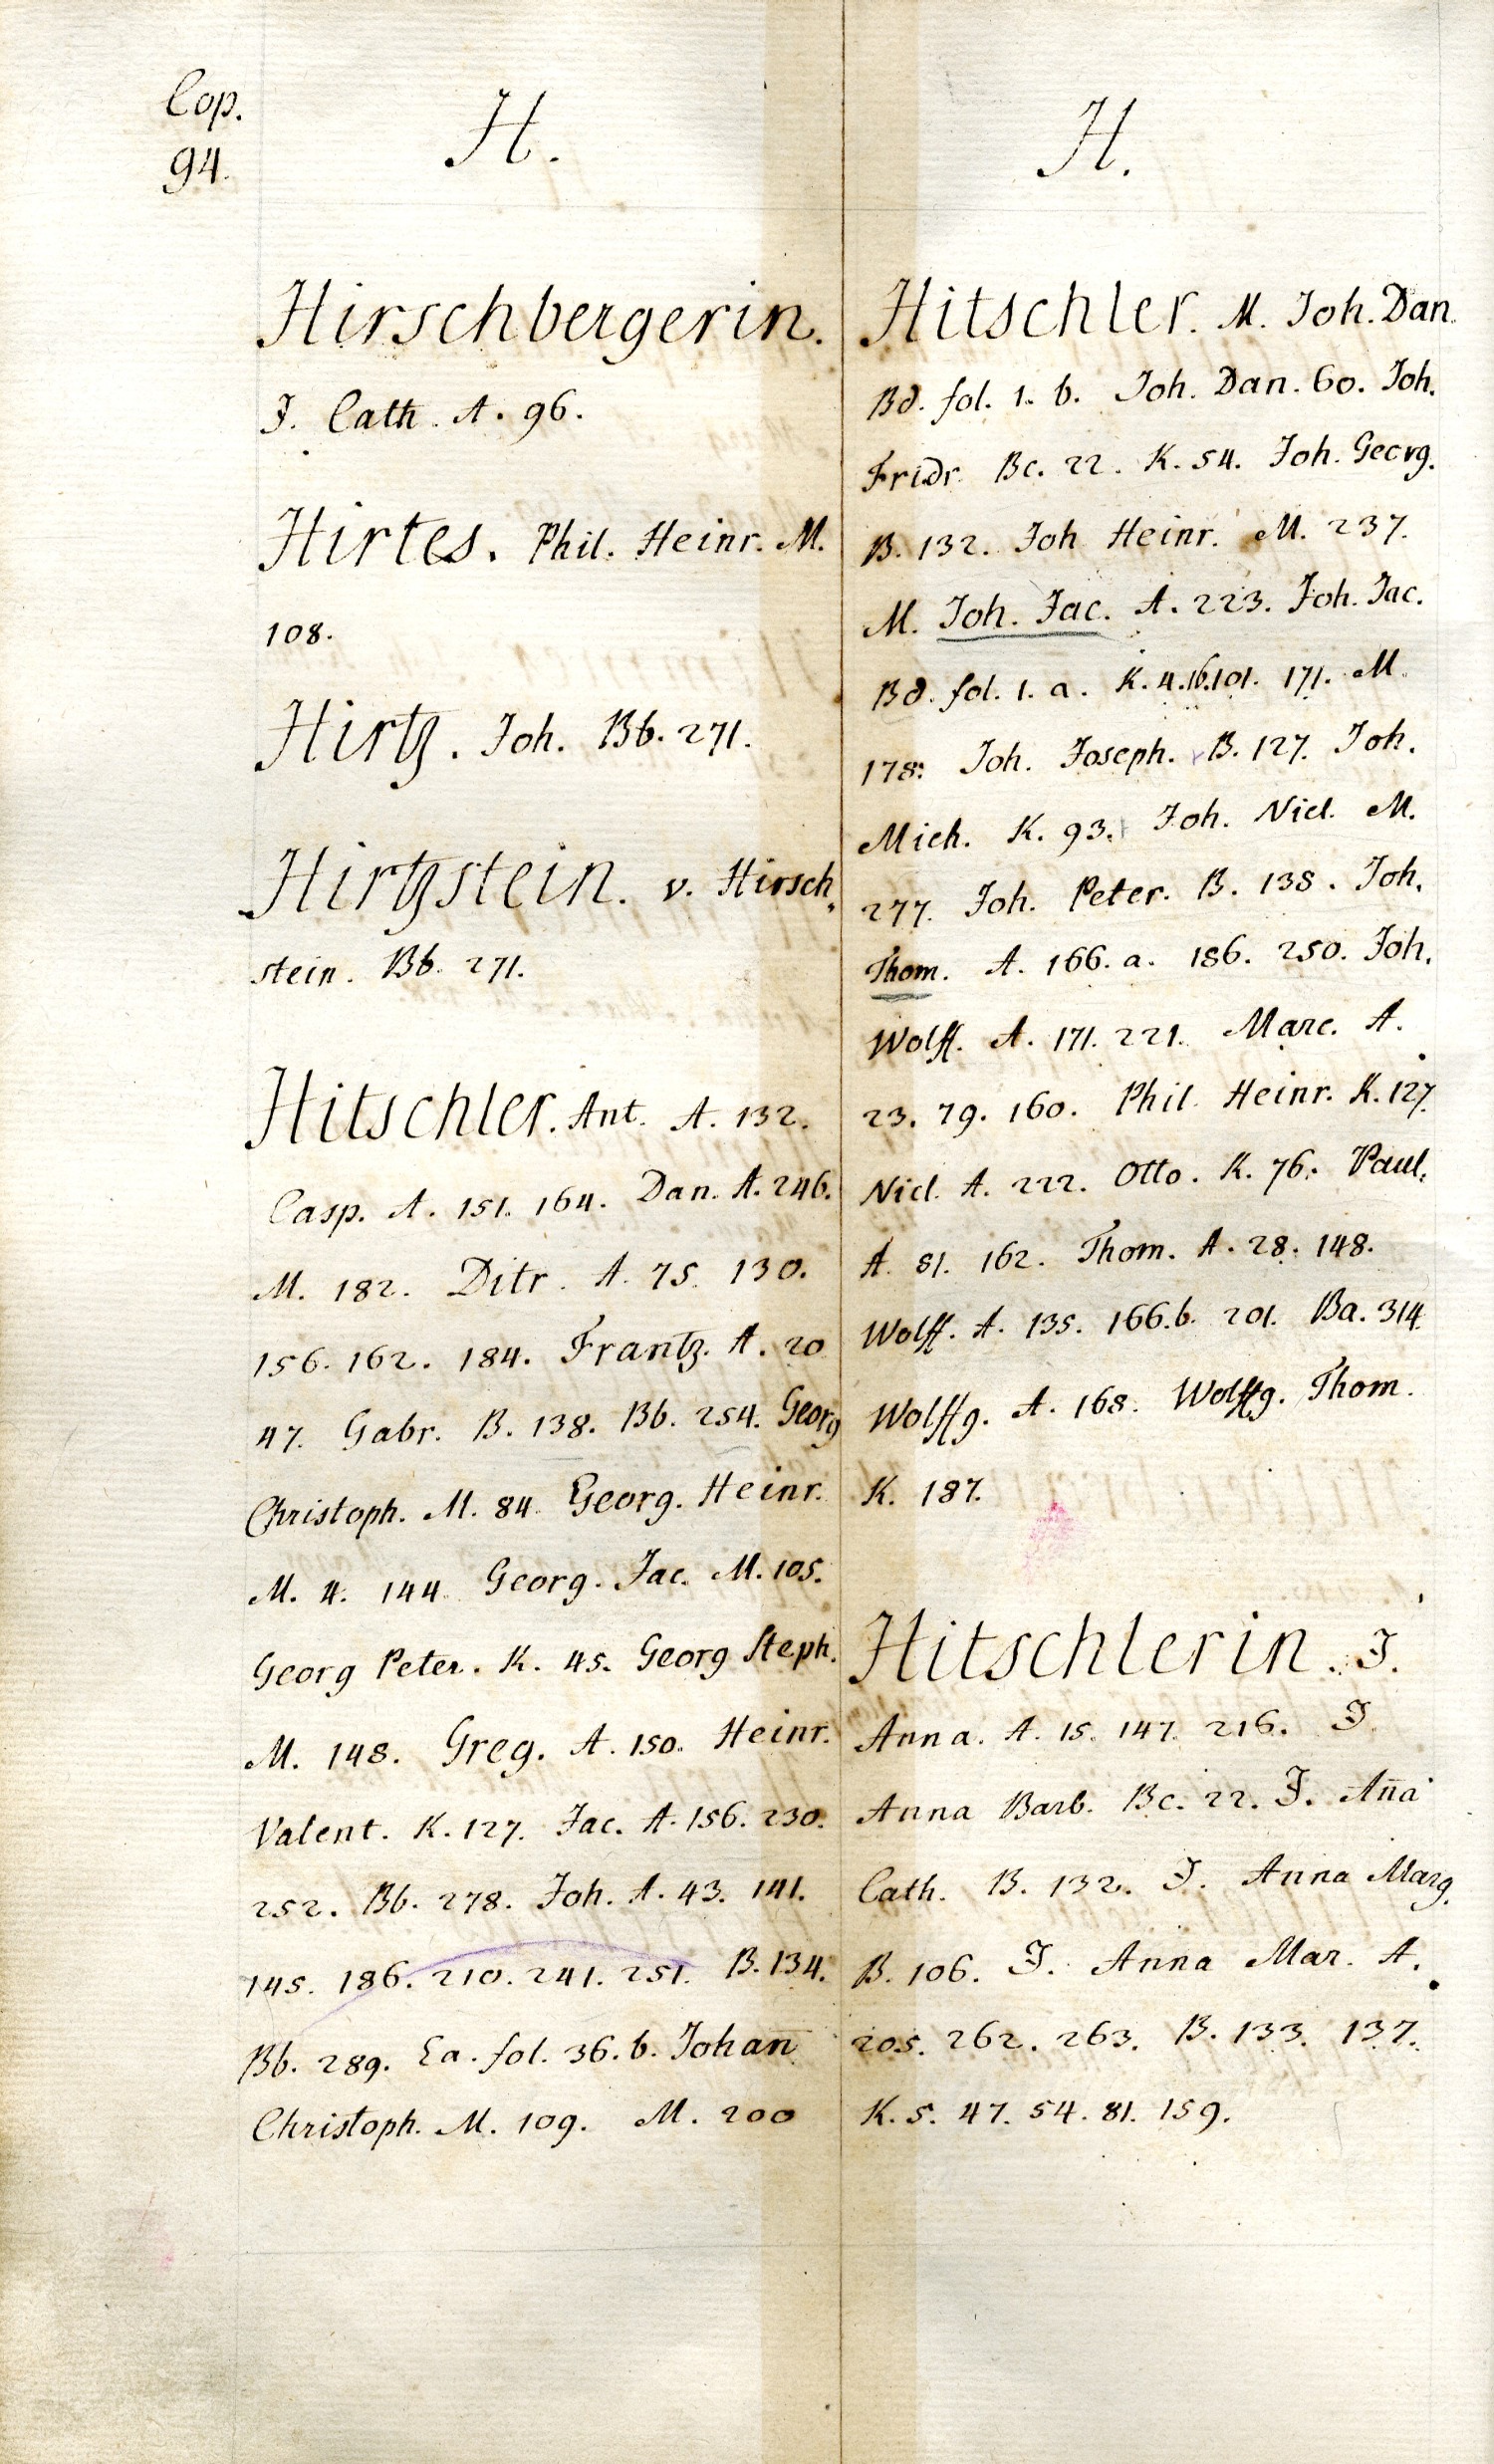 Cop.
94.
H.
Hirschbergerin.
J. Cath. A. 96.
Hirtes. Phil. Heinr. M.
108.
Hirtz. Joh. Bb. 271.
Hirtzstein. v. Hirsch,
stein. Bb. 271.
Hitschler. Ant. A. 132.
Casp. A. 151. 164. Dan. A. 246.
M. 182. Ditr. A. 75. 130.
156. 162. 184. Frantz. A. 20
47. Gabr. B. 138. Bb. 254. Georg
Christoph. M. 84. Georg. Heinr.
M. 4. 144. Georg. Jac. M. 105.
Georg Peter. K. 45. Georg Steph.
M. 148. Greg. A. 150. Heinr.
Valent. K. 127. Jac. A. 156. 230.
252. Bb. 278. Joh. A. 43. 141.
145. 186. 210. 241. 251. B. 134.
Bb. 289. Ea. fol. 36. b. Johan̄
Christoph. M. 109. M. 200
H.
Hitschler. M. Joh. Dan.
Bd. fol. 1. b. Joh. Dan. 60. Joh.
Fridr. Bc. 22. K. 54. Joh. Georg.
B. 132. Joh Heinr. M. 237.
M. Joh. Jac. A. 223. Joh. Jac.
Bd. fol. 1. a. K. 4. 16. 101. 171. M.
178. Joh. Joseph. B. 127. Joh.
Mich. K. 93. Joh. Nicl. M.
277. Joh. Peter. B. 138. Joh.
Thom. A. 166. a. 186. 250. Joh.
Wolff. A. 171. 221. Marc. A.
23. 79. 160. Phil. Heinr. K. 127.
Nicl. A. 222. Otto. K. 76. Paul.
A. 81. 162. Thom. A. 28. 148.
Wolff. A. 135. 166. b. 201. Ba. 314.
Wolffg. A. 168. Wolffg. Thom.
K. 187.
Hitschlerin. J.
Anna. A. 15. 147. 216. J.
Anna Barb. Bc. 22. J. An̄a
Cath. B. 132. J. Anna Marg.
B. 106. J. Anna Mar. A.
205. 262. 263. B. 133. 137.
K. 5. 47. 54. 81. 159.